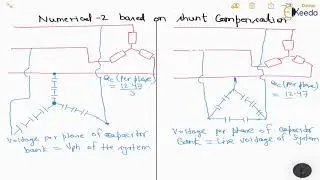 Numerical-2 based on shunt Compensation
Keeda
Qc (Per phase)
= 12.47
3
Voltage per phase of capacitor
bank = Vph of the system
Qc (Per phase)
= 12.47
Voltage per phase of capacitor
Bank = Line voltage of system